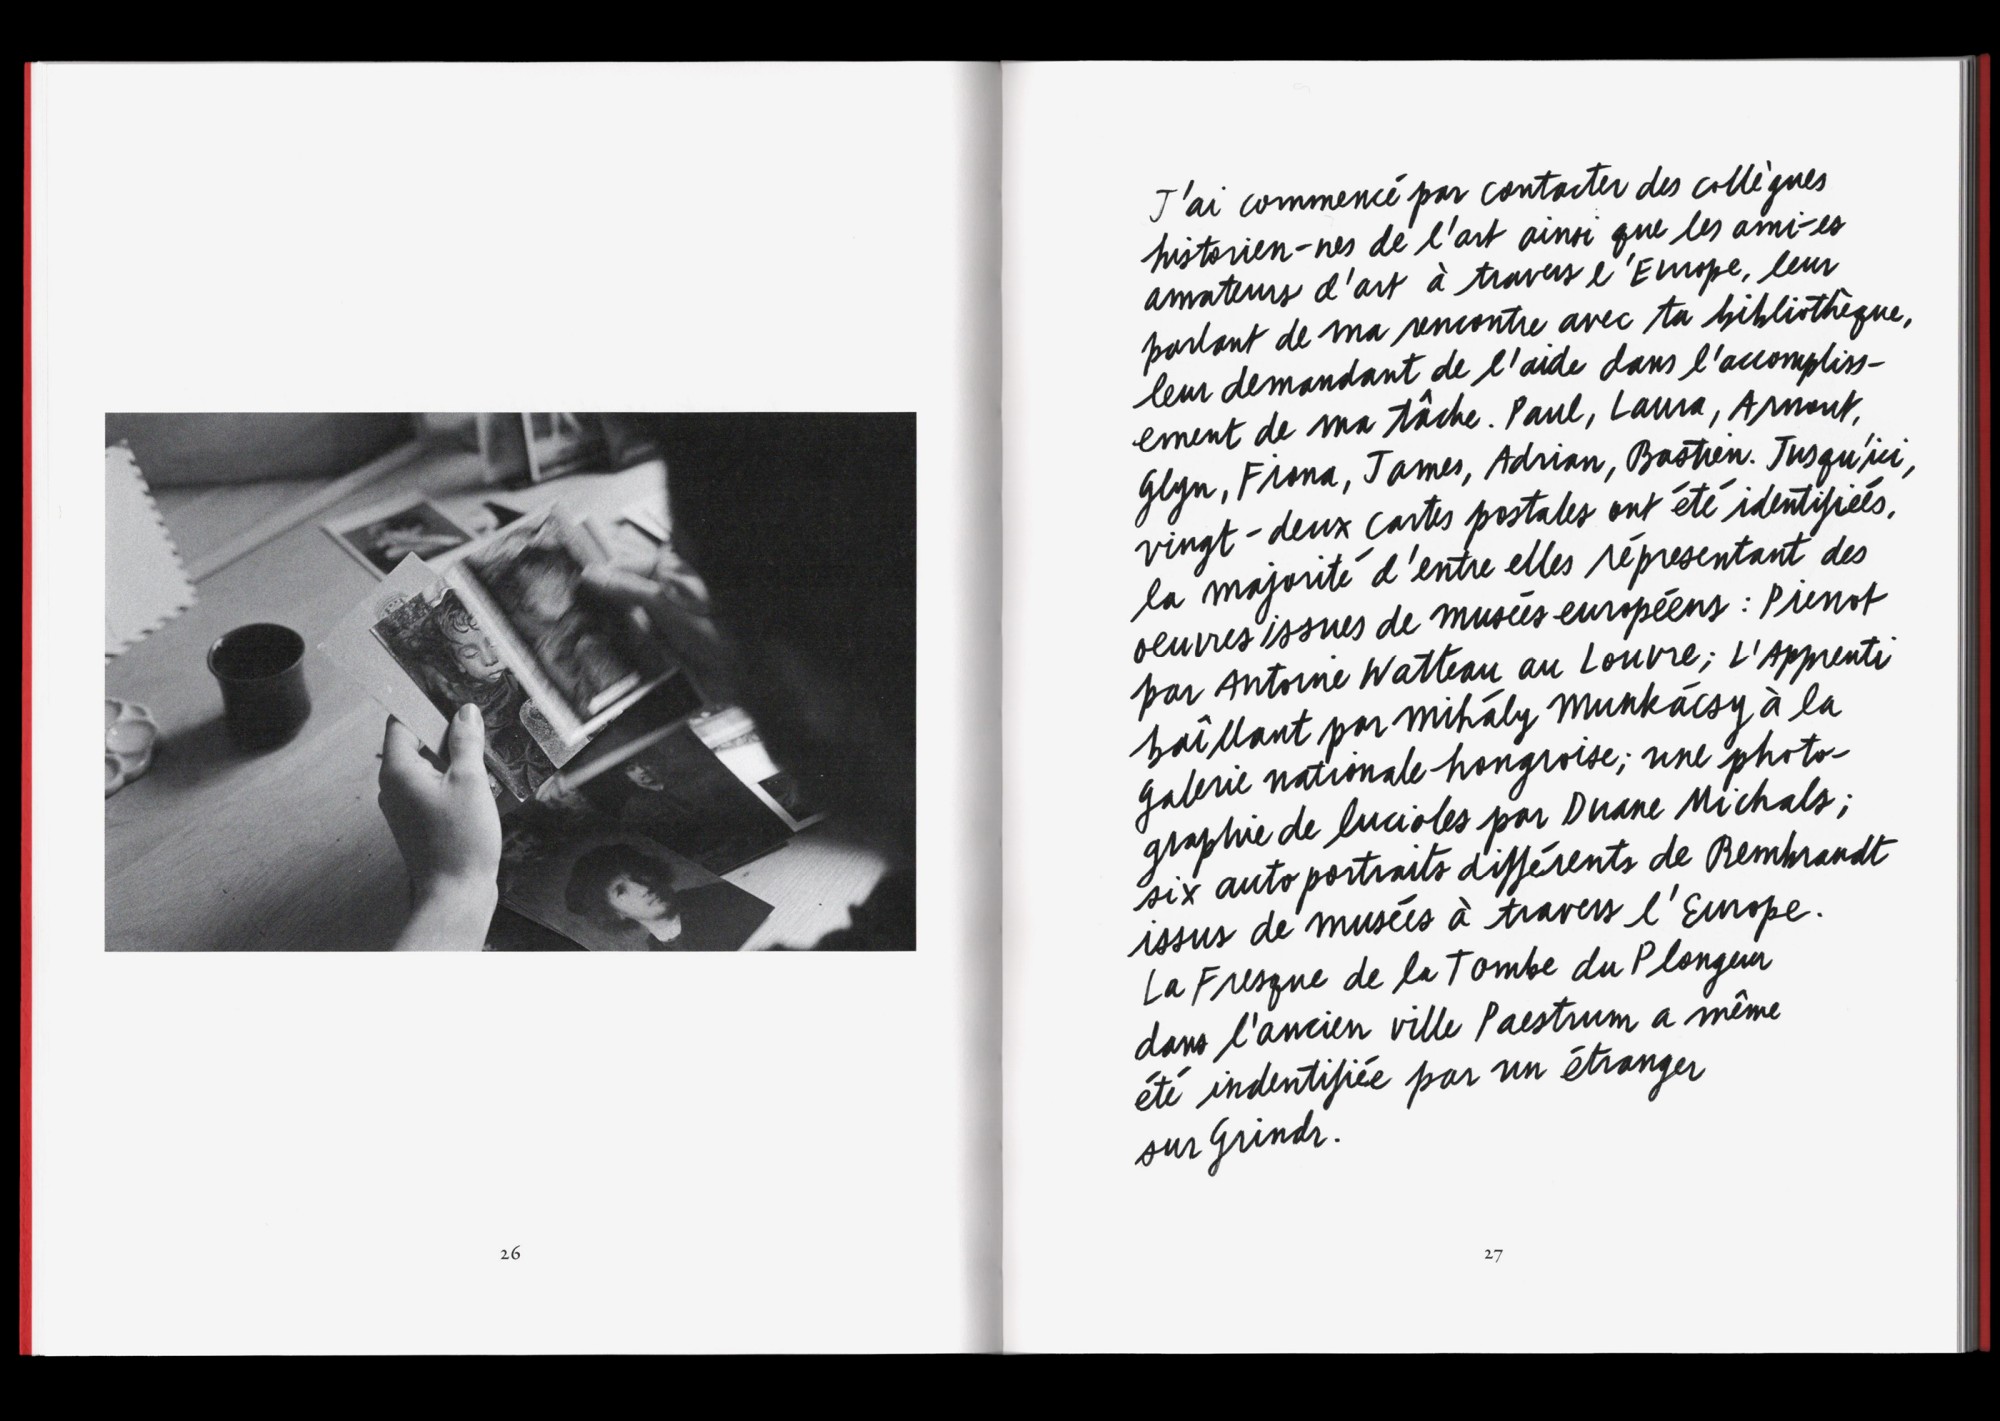 J'ai commencé par contacter des collègues
historien-nes de l'art ainsi que les ami-es
amateurs d'art à travers l'Europe, leur
parlant de ma rencontre avec ta bibliothèque,
leur demandant de l'aide dans l'accompliss-
ement de ma tâche. Paul, Laura, Arnout,
Glyn, Fiona, James, Adrian, Bastien. Jusqu'ici,
vingt-deux cartes postales ont été identifiées,
la majorité d'entre elles réprésentant des
oeuvres issues de musées européens : Pierrot
par Antoine Watteau au Louvre; L'Apprenti
baîllant par Mihály Munkácsy à la
Galerie nationale hongroise; une photo-
graphie de lucioles par Duane Michals;
six autoportraits différents de Rembrandt
issus de musées à travers l'Europe.
La Fresque de la Tombe du Plongeur
dans l'ancien ville Paestrum a même
été indentifiée par un étranger
sur Grindr.
26
27